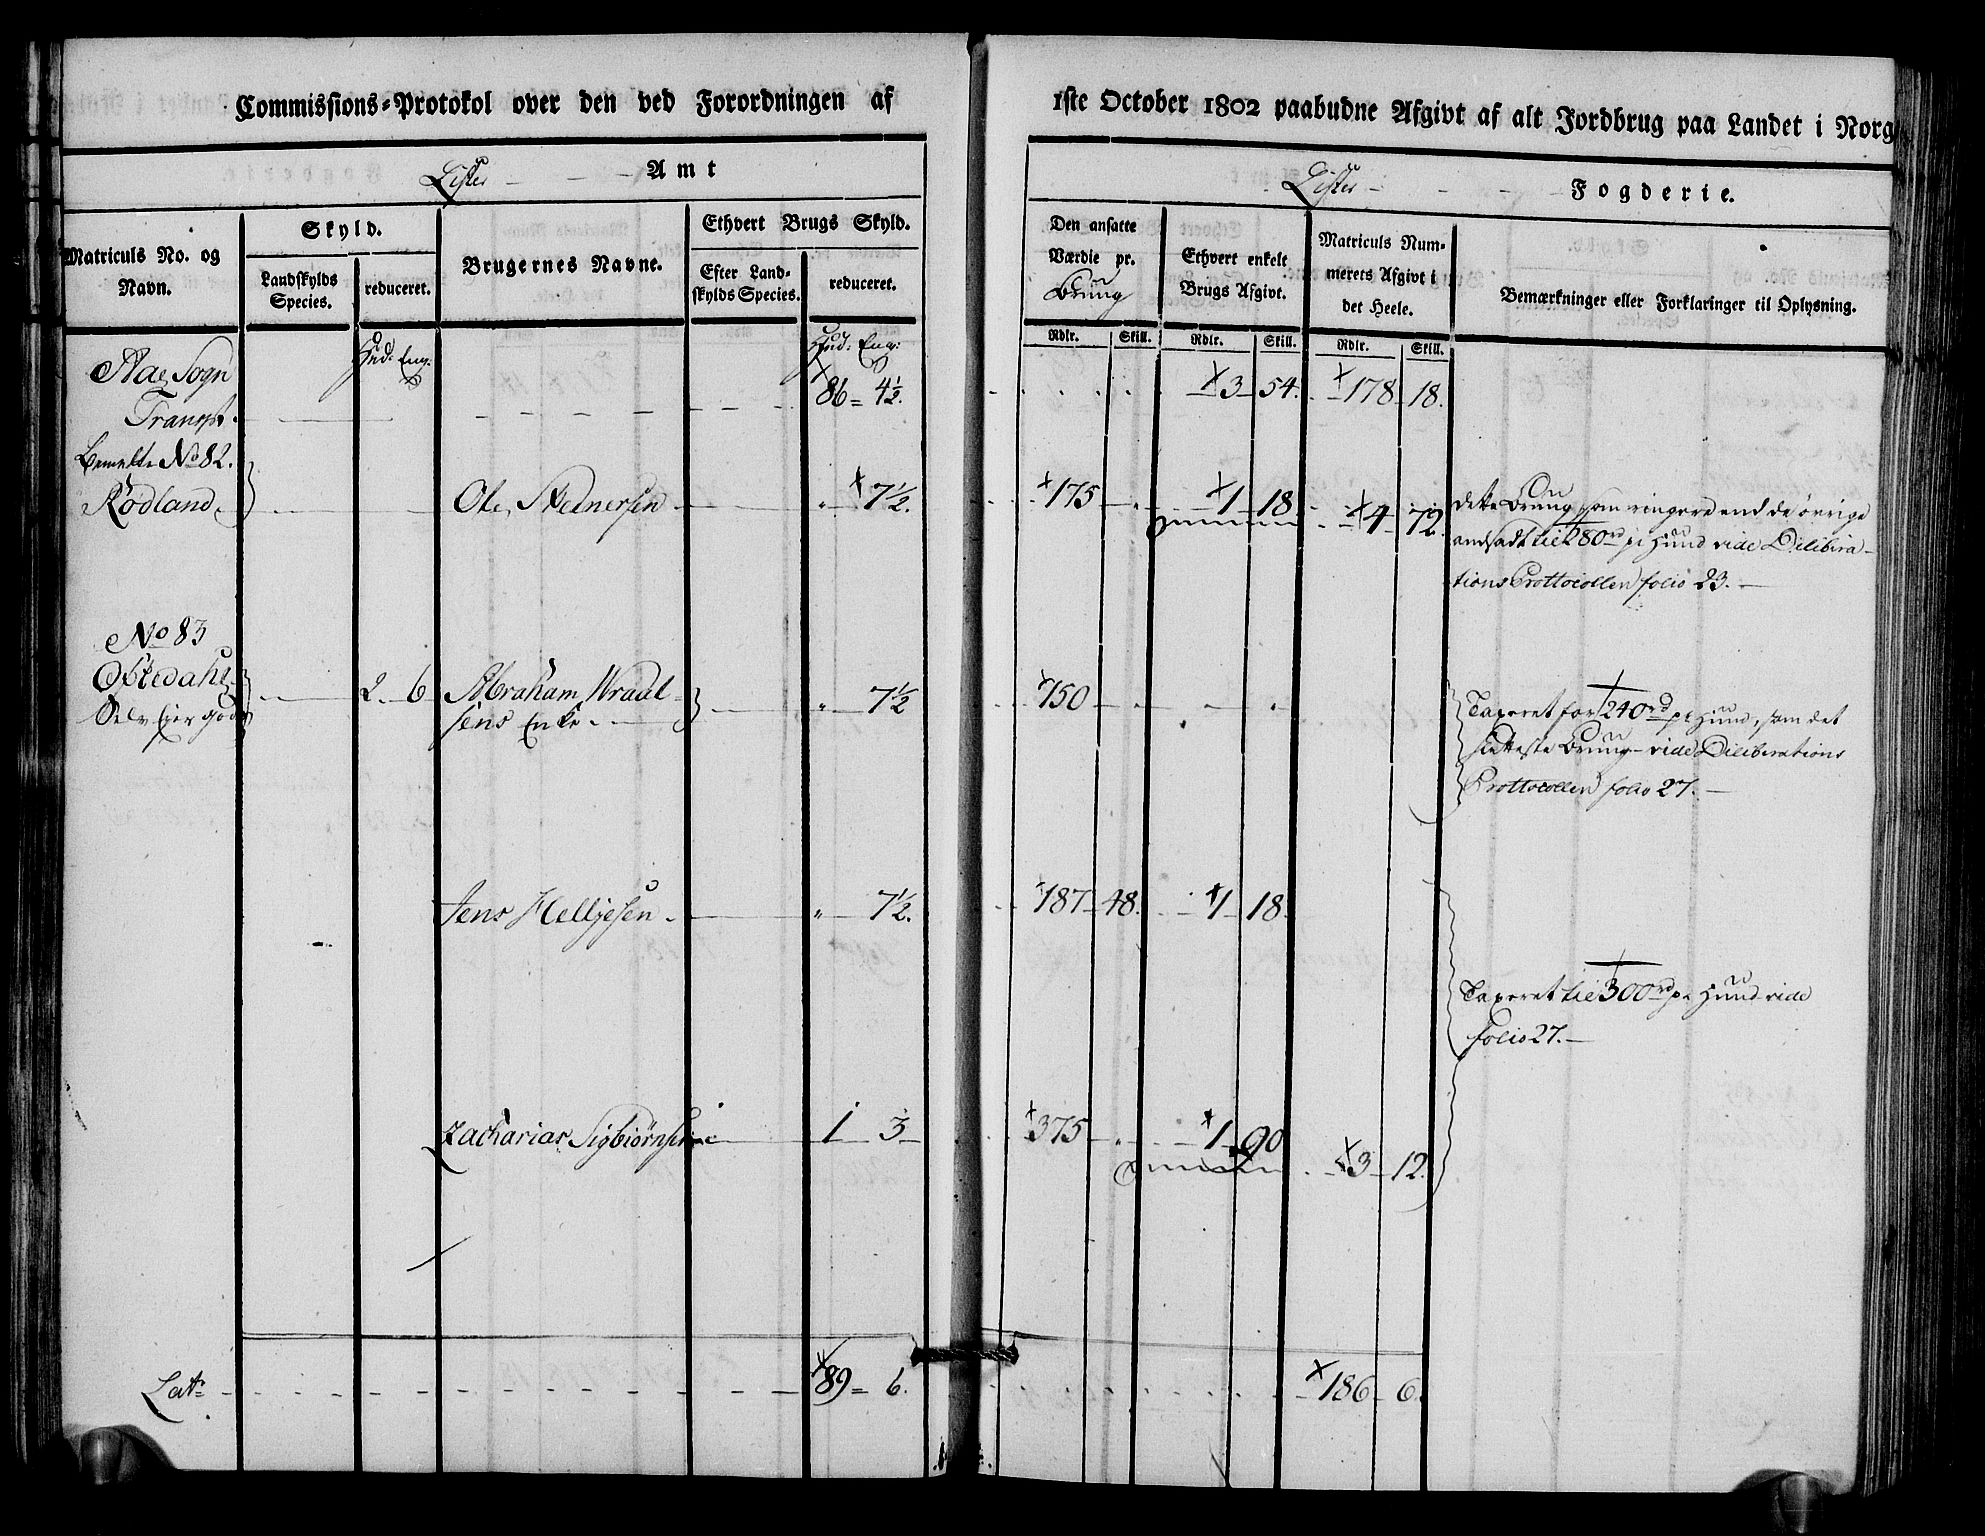 Commissions-Protokol over den ved Forordningen af
1ste October 1802 paabudne Afgivt af alt Jordbrug paa Landet i Norg
Lister Amt
Lister Fogderie.
Matriculs No. og Navn.
Skyld.
Landskylds Species.
reduceret.
Brugernes Navne.
Ethvert Brugs Skyld.
Efter Landskylds Species.
reduceret.
Den ansatte Værdie pr. Bruug
Ethvert enkelt Brugs Afgivt.
Matriculs Nummerets Afgivt i det Heele.
Bemærkninger eller Forklaringer til Oplysning.
Rdlr. Skill. Rdlr. Skill. Rdlr. Skill.
Hud: Eng: Hud: Eng:
Aae Sogn
Transpt. 86 = 4½. 3 54. 178 18.
Bemelte No 82.
Rødland Ole 7½. 175 1 18 4 72.
dette Bruug som ringere end de øvrige
andsadt til 280 rd pr Huud vide Delibera-
tions Prottocollen folio 23.
No 83
Selv Eier gods 2 6 Abraham Wraal-
sens Enke 7½ 150
Taxeret for 240 rd pr Huud, som det
sletteste Bruug vide Deliberations
Prottocollen folio 27.
Jens Helljesen 7½. 187 48. 1 18
Taxeret til 300 rd pr Huud vide
folio 27.
Zacharias Sigbiørnsen 1 3 375 1 90 3 12.
Lat. 89 = 6. 186 6.